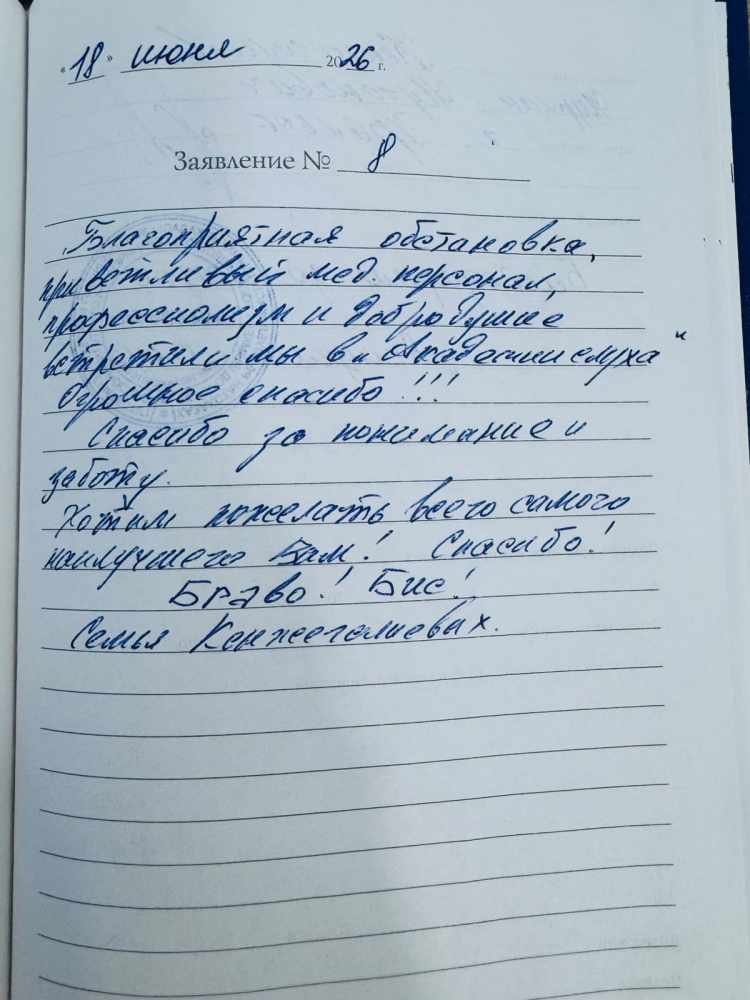 «18» июня 2026 г.
Заявление № 8
Благоприятная обстановка,
приветливый мед. персонал,
профессионализм и добродушие
встретили мы в "Академии слуха"
Огромное спасибо!!!
Спасибо за понимание и
заботу.
Хотим пожелать всего самого
наилучшего Вам! Спасибо!
Браво! Бис!
Семья Кенжегалиевых.